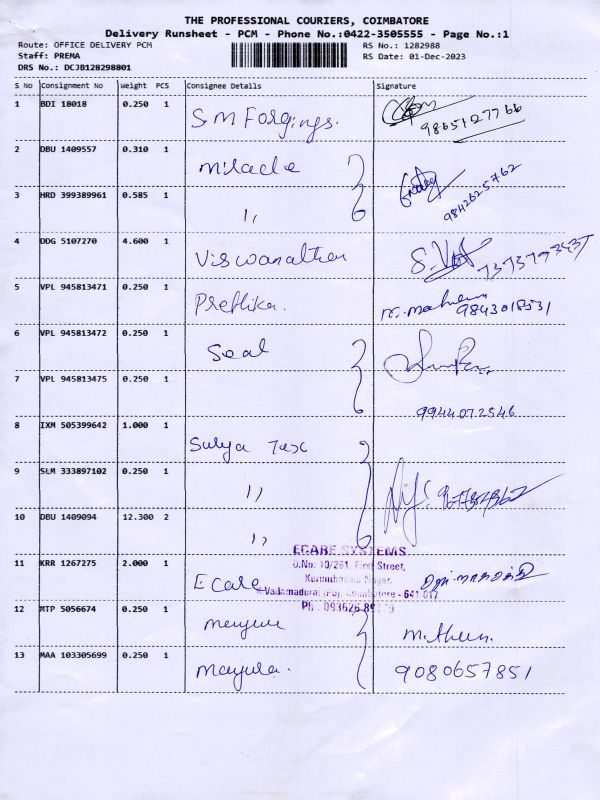 THE PROFESSIONAL COURIERS, COIMBATORE
Delivery Runsheet - PCM - Phone No.:0422-3505555 - Page No.:1
Route: OFFICE DELIVERY PCM
RS No.: 1282988
Staff: PREMA
RS Date: 01-Dec-2023
DRS No.: DCJB128298801
S No Consignment No Weight PCS Consignee Details Signature
1 BDI 18018 0.250 1 S M Forgings. 9865127766
2 DBU 1409557 0.310 1 Miracle
3 HRD 399389961 0.585 1 ,, 9842625762
4 DDG 5107270 4.600 1 Viswanathan
5 VPL 945813471 0.250 1 Prethika. 9843018531
6 VPL 945813472 0.250 1 Seal
7 VPL 945813475 0.250 1 9944072546
8 IXM 505399642 1.000 1 Surya Tex
9 SLM 333897102 0.250 1 ,,
10 DBU 1409094 12.300 2 ,,
ECARE SYSTEMS
D.No: 10/261, First Street,
11 KRR 1267275 2.000 1 Ecare
Vadamadurai (Po), Coimbatore - 641 017
12 MTP 5056674 0.250 1
13 MAA 103305699 0.250 1 Mayura. 9080657851